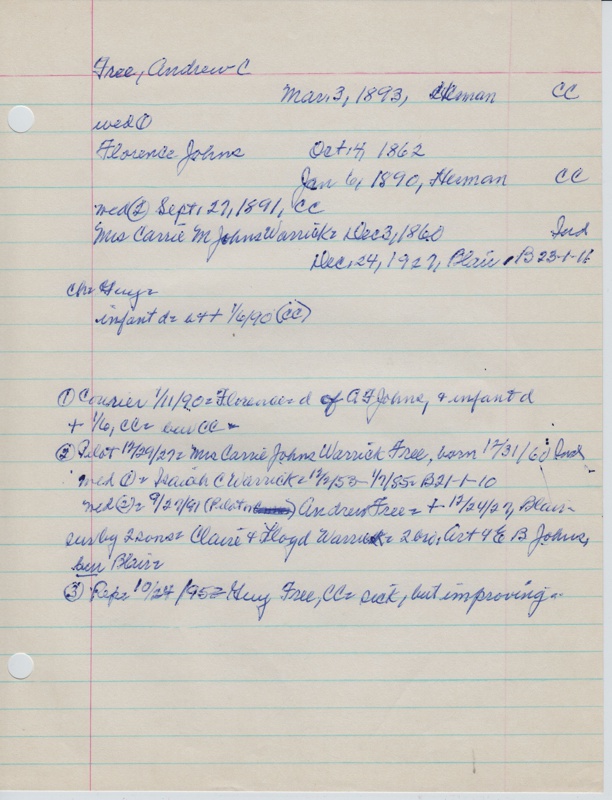 Free, Andrew C
Mar. 3, 1893, Herman CC
wed ①
Florence Johns Oct 14, 1862
Jan 6, 1890, Herman CC
wed ② Sept. 27, 1891, CC
Mrs Carrie M Johns Warrick = Dec 3, 1860 Ind
Dec. 24, 1927, Blair, B 23-1-16
ch = Guy =
infant d = & + 1/6/90 (CC)
① Courier 1/11/90 = Florence = d of A F Johns, & infant d
+ 1/6, CC = bur CC =
② Pilot 12/29/27 = Mrs Carrie Johns Warrick Free, born 12/31/60 Ind
wed ① = Isaiah C Warrick = 12/2/53 - 1/7/85 = B21-1-10
wed ② = 9/27/91 (Pilot) Andrew Free = + 12/24/27, Blair =
sur by 2 sons = Claire & Floyd Warrick = 2 bro, Art & E B Johns,
bur Blair =
③ Rep = 10/24/95 = Guy Free, CC = sick, but improving =